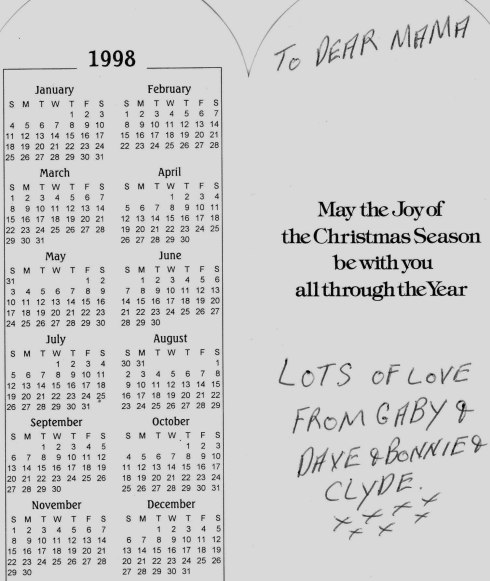 1998
January
S M T W T F S
1 2 3
4 5 6 7 8 9 10
11 12 13 14 15 16 17
18 19 20 21 22 23 24
25 26 27 28 29 30 31
February
S M T W T F S
1 2 3 4 5 6 7
8 9 10 11 12 13 14
15 16 17 18 19 20 21
22 23 24 25 26 27 28
March
S M T W T F S
1 2 3 4 5 6 7
8 9 10 11 12 13 14
15 16 17 18 19 20 21
22 23 24 25 26 27 28
29 30 31
April
S M T W T F S
1 2 3 4
5 6 7 8 9 10 11
12 13 14 15 16 17 18
19 20 21 22 23 24 25
26 27 28 29 30
May
S M T W T F S
31 1 2
3 4 5 6 7 8 9
10 11 12 13 14 15 16
17 18 19 20 21 22 23
24 25 26 27 28 29 30
June
S M T W T F S
1 2 3 4 5 6
7 8 9 10 11 12 13
14 15 16 17 18 19 20
21 22 23 24 25 26 27
28 29 30
July
S M T W T F S
1 2 3 4
5 6 7 8 9 10 11
12 13 14 15 16 17 18
19 20 21 22 23 24 25
26 27 28 29 30 31
August
S M T W T F S
30 31 1
2 3 4 5 6 7 8
9 10 11 12 13 14 15
16 17 18 19 20 21 22
23 24 25 26 27 28 29
September
S M T W T F S
1 2 3 4 5
6 7 8 9 10 11 12
13 14 15 16 17 18 19
20 21 22 23 24 25 26
27 28 29 30
October
S M T W T F S
1 2 3
4 5 6 7 8 9 10
11 12 13 14 15 16 17
18 19 20 21 22 23 24
25 26 27 28 29 30 31
November
S M T W T F S
1 2 3 4 5 6 7
8 9 10 11 12 13 14
15 16 17 18 19 20 21
22 23 24 25 26 27 28
29 30
December
S M T W T F S
1 2 3 4 5
6 7 8 9 10 11 12
13 14 15 16 17 18 19
20 21 22 23 24 25 26
27 28 29 30 31
TO DEAR MAMA
May the Joy of
the Christmas Season
be with you
all through the Year
LOTS OF LOVE
FROM GABY &
DAVE & BONNIE &
CLYDE.
x x x x
x x x